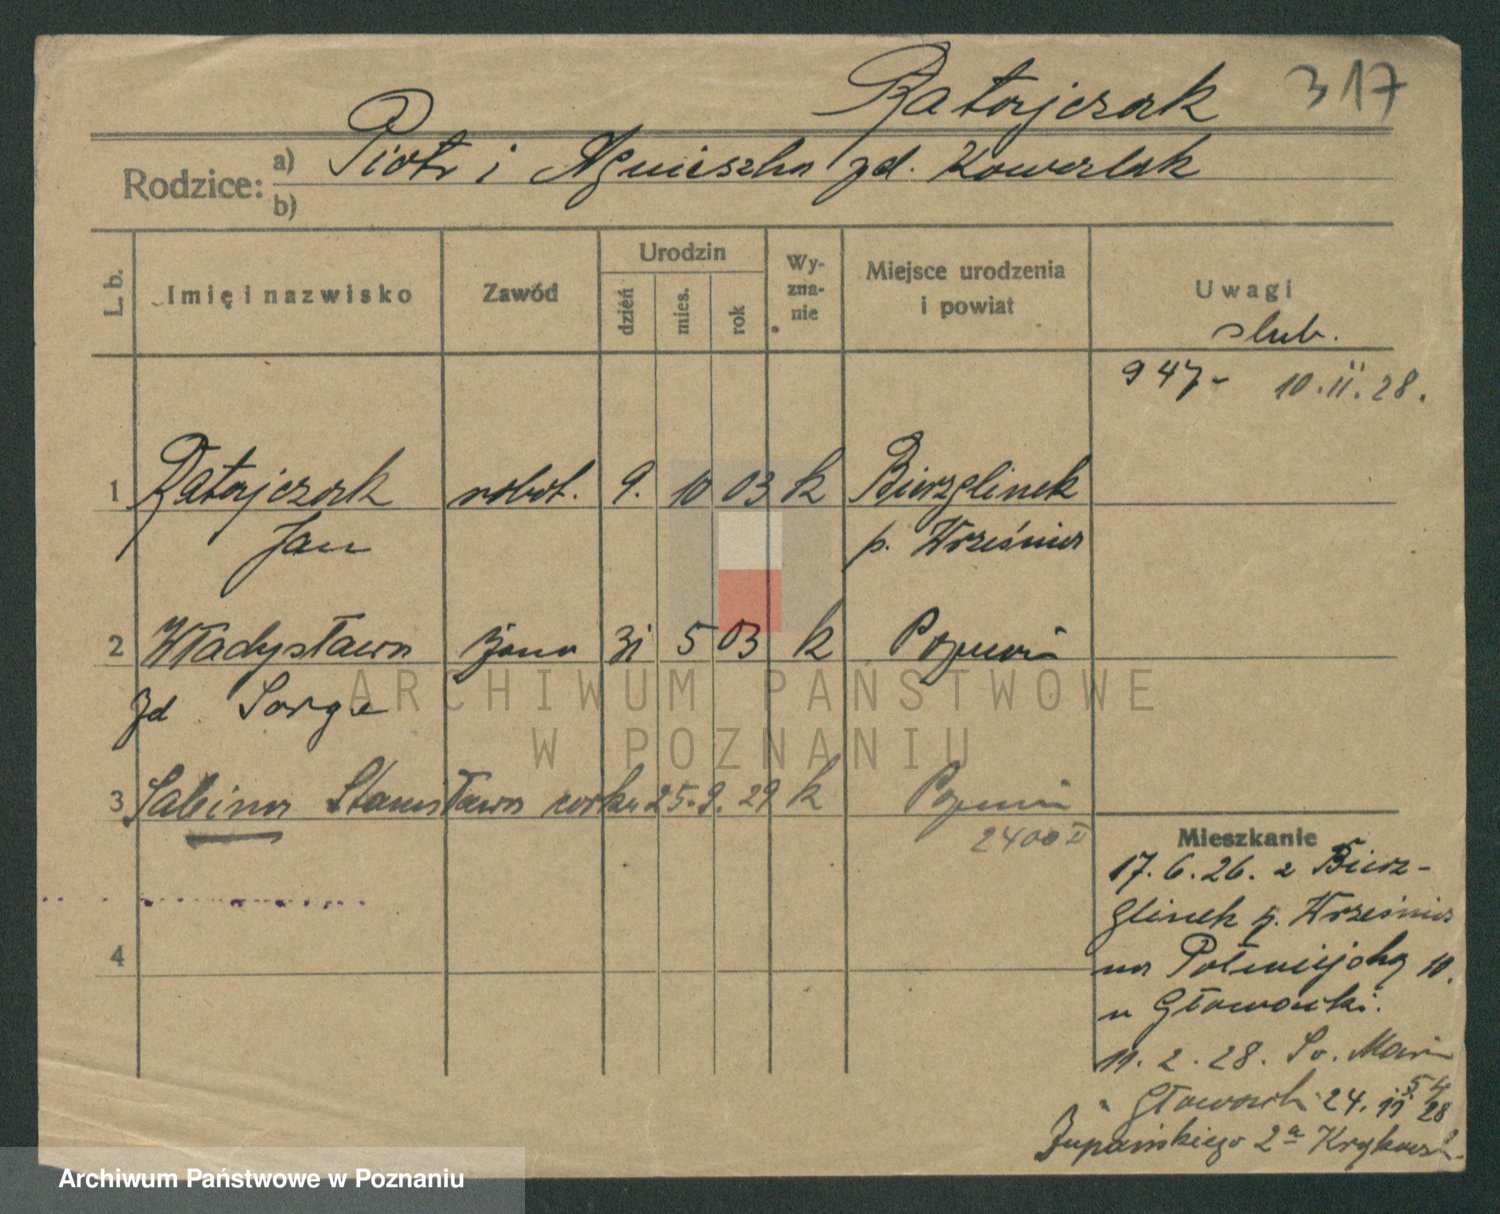 Ratajczak 317
Rodzice: a) Piotr i Agnieszka zd. Kowalak
b)
L. b. Imię i nazwisko Zawód Urodzin dzień mies. rok Wyznanie Miejsce urodzenia i powiat Uwagi
slub.
947- 10.II.28.
1 Ratajczak robot. 9. 10 03 k Bierzglinek
Jan p. Września
2 Władysława żona 31 5 03 k Poznań
zd Sorge
3 Sabina Stanisława córka 25.9.29 k Poznań
2400 II
Mieszkanie
17.6.26. z Bierz-
glinek p. Września
na Półwiejską 10.
u Głowacki.
4
11.2.28. Św. Marcin
54
Głowacki 24.11 28
Żupańskiego 2a
ARCHIWUM PAŃSTWOWE
W POZNANIU
Archiwum Państwowe w Poznaniu